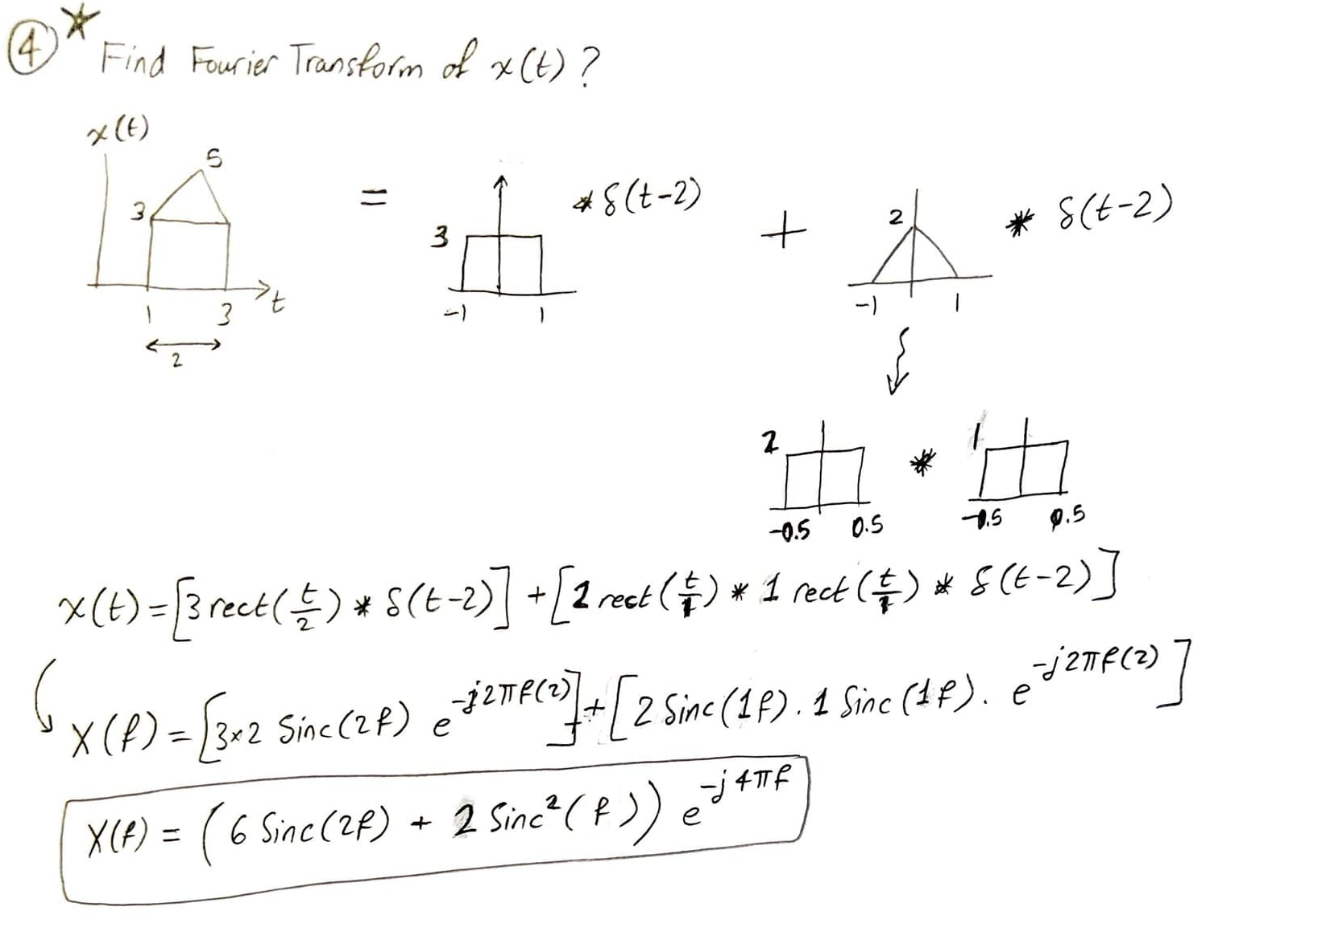 4 *
Find Fourier Transform of x(t) ?
x(t)
5
3
1 3 t
2
=
3
-1 1
* δ(t-2)
+
2
-1 1
* δ(t-2)
2
-0.5 0.5
*
1
-0.5 0.5
x(t) = [3 rect(t/2) * δ(t-2)] + [2 rect(t/1) * 1 rect(t/1) * δ(t-2)]
X(f) = [3×2 Sinc(2f) e^{-j2πf(2)}] + [2 Sinc(1f) . 1 Sinc(1f) . e^{-j2πf(2)}]
X(f) = (6 Sinc(2f) + 2 Sinc²(f)) e^{-j4πf}